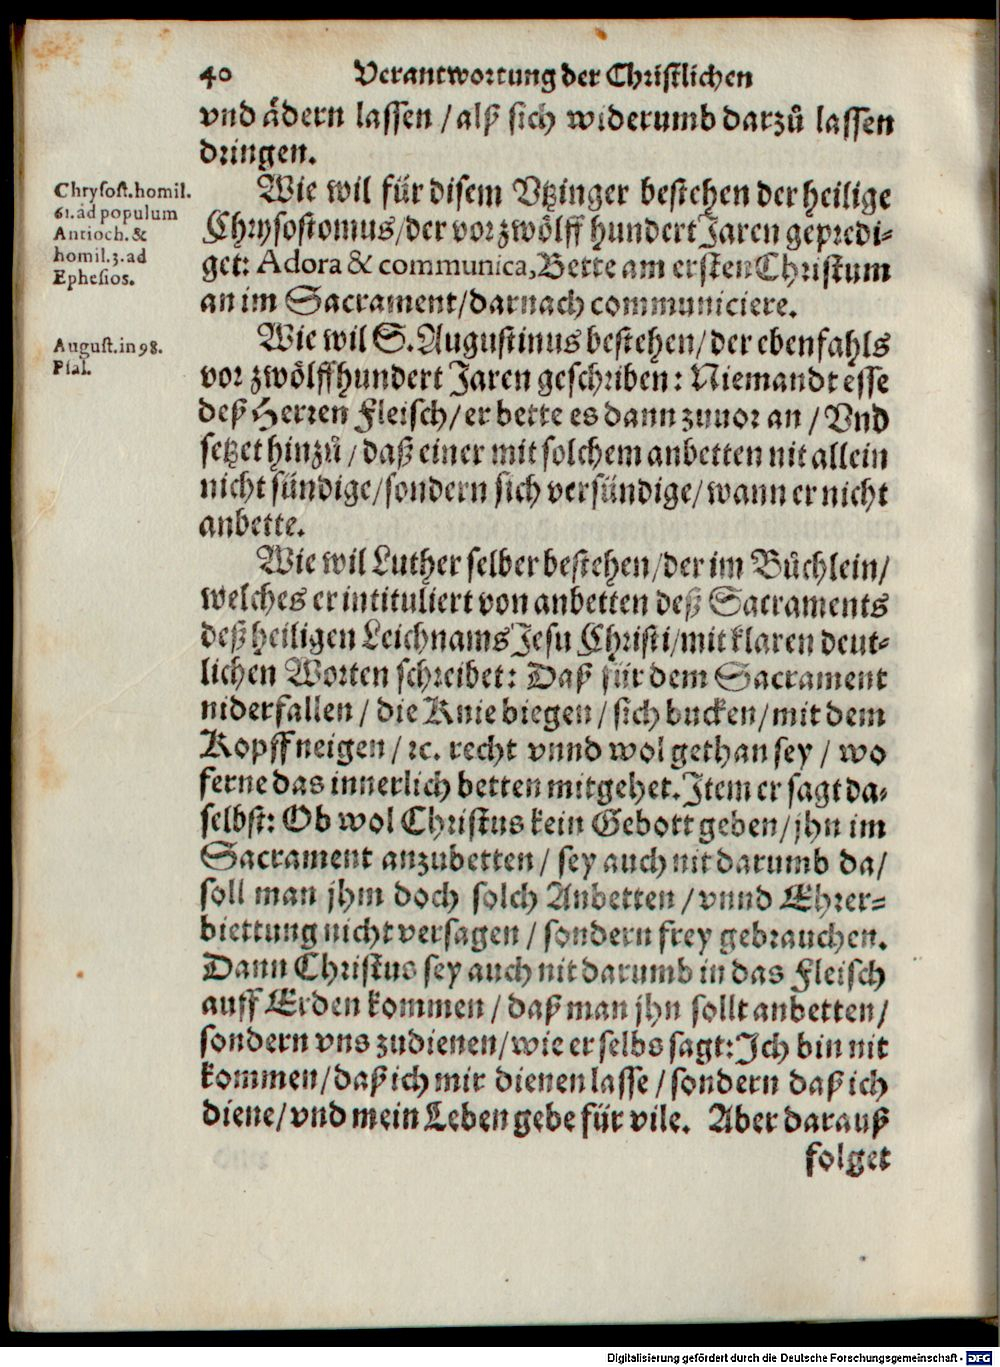 40 Verantwortung der Christlichen
vnd ädern lassen / alß sich widerumb darzů lassen
dringen.
Chrysost. homil.
61. ad populum
Antioch. &
homil. 3. ad
Ephesios.
Wie wil für disem Vtzinger bestehen der heilige
Chrysostomus/der vor zwölff hundert Jaren gepredi-
get: Adora & communica, Bette am ersten Christum
an im Sacrament/darnach communiciere.
August. in 98.
Psal.
Wie wil S. Augustinus bestehen/der ebenfahls
vor zwölffhundert Jaren geschriben: Niemandt esse
deß Herren Fleisch/er bette es dann zuuor an / Vnd
setzet hinzů / daß einer mit solchem anbetten nit allein
nicht sündige/sondern sich versündige/wann er nicht
anbette.
Wie wil Luther selber bestehen/der im Bůchlein/
welches er intituliert von anbetten deß Sacraments
deß heiligen Leichnams Jesu Christi/mit klaren deut-
lichen Worten schreibet: Daß für dem Sacrament
niderfallen / die Knie biegen / sich bucken/mit dem
Kopff neigen / ꝛc. recht vnnd wol gethan sey / wo
ferne das innerlich betten mitgehet. Item er sagt da-
selbst: Ob wol Christus kein Gebott geben/jhn im
Sacrament anzubetten / sey auch nit darumb da/
soll man jhm doch solch Anbetten / vnnd Ehrer-
biettung nicht versagen / sondern frey gebrauchen.
Dann Christus sey auch nit darumb in das Fleisch
auff Erden kommen / daß man jhn sollt anbetten/
sondern vns zudienen/wie er selbs sagt: Ich bin nit
kommen/daß ich mir dienen lasse / sondern daß ich
diene/vnd mein Leben gebe für vile. Aber darauß
folget
Digitalisierung gefördert durch die Deutsche Forschungsgemeinschaft - DFG